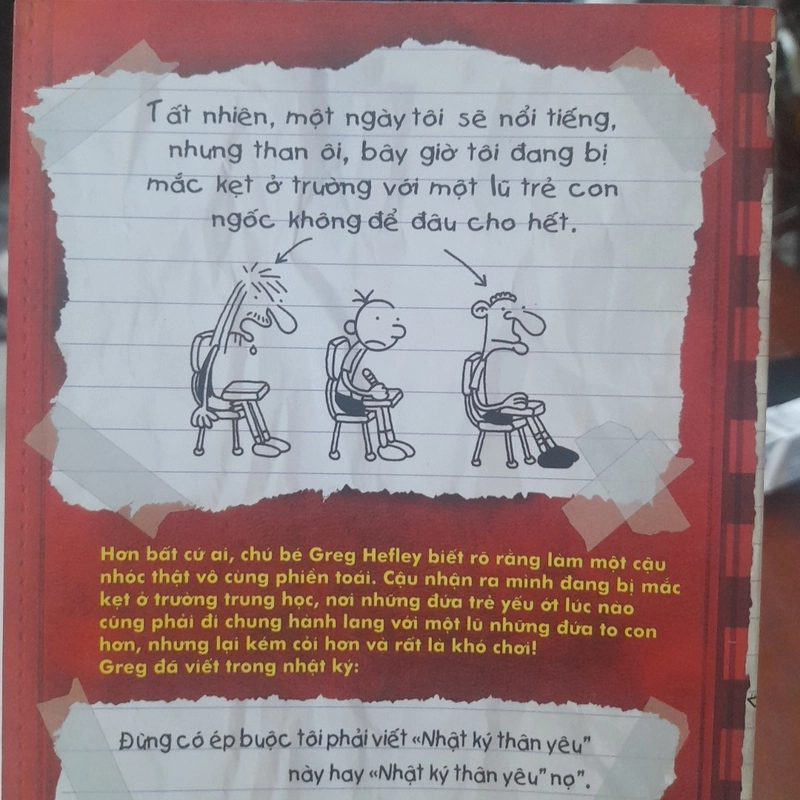 Tất nhiên, một ngày tôi sẽ nổi tiếng,
nhưng than ôi, bây giờ tôi đang bị
mắc kẹt ở trường với một lũ trẻ con
ngốc không để đâu cho hết.
Hơn bất cứ ai, chú bé Greg Hefley biết rõ rằng làm một cậu
nhóc thật vô cùng phiền toái. Cậu nhận ra mình đang bị mắc
kẹt ở trường trung học, nơi những đứa trẻ yếu ớt lúc nào
cũng phải đi chung hành lang với một lũ những đứa to con
hơn, nhưng lại kém cỏi hơn và rất là khó chơi!
Greg đã viết trong nhật ký:
Đừng có ép buộc tôi phải viết «Nhật ký thân yêu"
này hay «Nhật ký thân yêu" nọ".